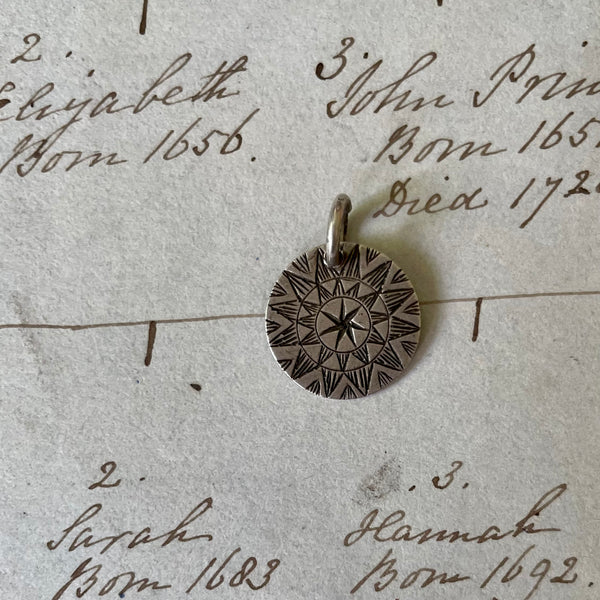 2.
Elizabeth
Born 1656.
3.
John Prin
Born 165
Died 172
2.
Sarah
Born 1683
3.
Hannah
Born 1692.